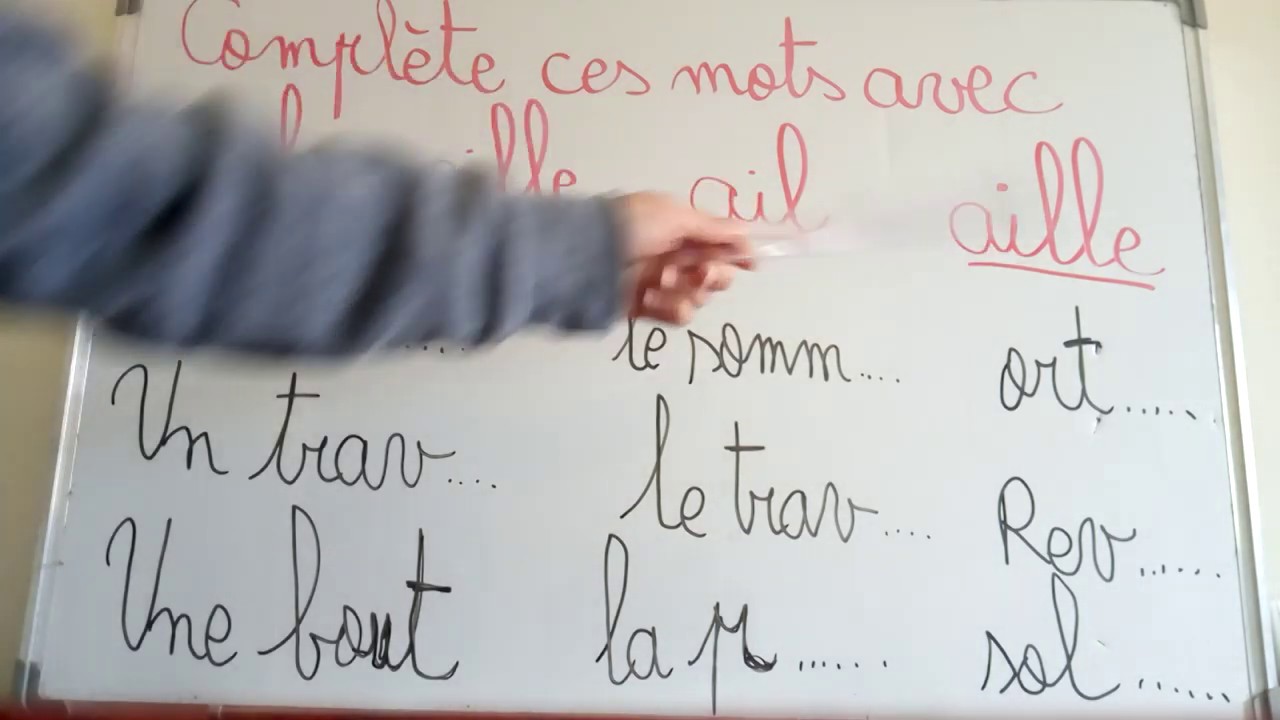 Complète ces mots avec
ille ail aille
.... le somm.... ort.....
Un trav.... le trav.... Rev.....
Une bout la p...... sol......